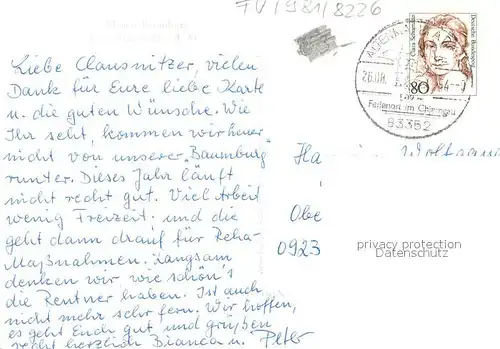 TV/981/8226
Liebe Clausnitzer, vielen
Dank für Eure liebe Karte
u. die guten Wünsche. Wie
Ihr seht, kommen wir heuer
nicht von unserer „Baumburg"
runter. Dieses Jahr läuft
nicht recht gut. Viel Arbeit
wenig Freizeit und die
geht dann drauf für Reha-
Maßnahmen. Langsam
denken wir wie schön's
die Rentner haben. Ist auch
nicht mehr sehr fern. Wir hoffen,
es geht Euch gut und grüßen
recht herzlich Bianca u. Peter
Clara Schumann
Deutsche Bundespost
80
26.08.
94
Ferienort im Chiemgau
83352
Ha
Wolfgang
Obe
0923
privacy protection
Datenschutz